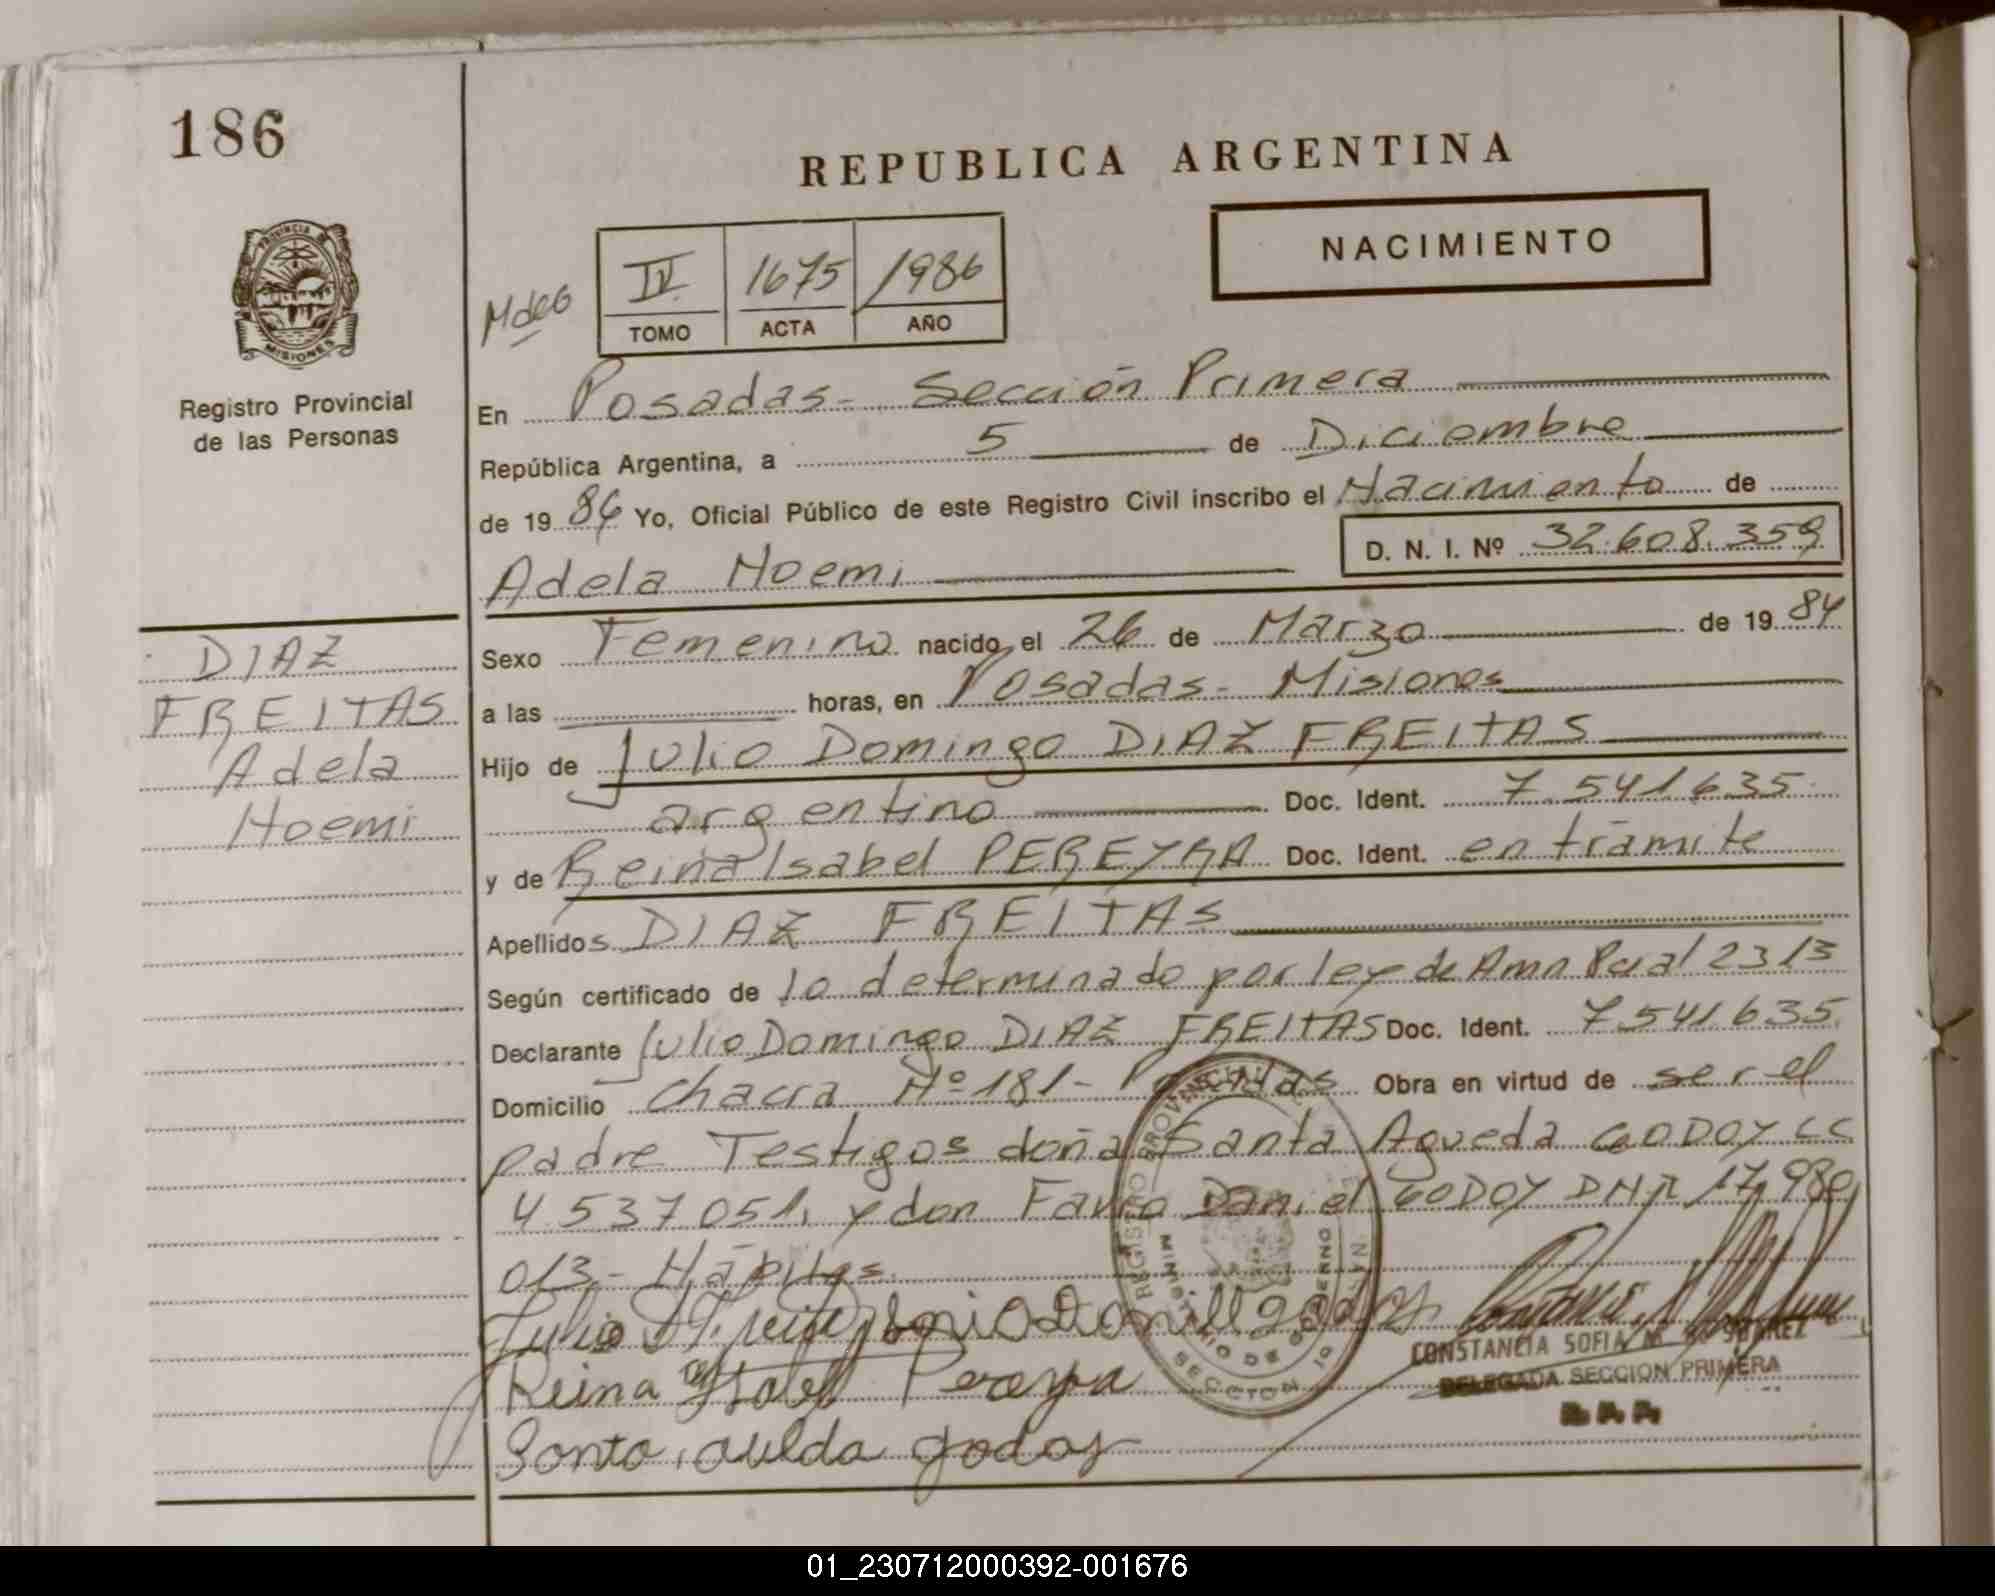 186
REPUBLICA ARGENTINA
NACIMIENTO
PROVINCIA DE
MISIONES
Registro Provincial
de las Personas
IV 1675 1986
TOMO ACTA AÑO
En Posadas - Sección Primera
República Argentina, a 5 de Diciembre
de 1986 Yo, Oficial Público de este Registro Civil inscribo el Nacimiento de
D. N. I. Nº 32.608.359
Adela Noemi
DIAZ
FREITAS
Adela
Noemi
Sexo Femenino nacido el 26 de Marzo de 1984
a las horas, en Posadas - Misiones
Hijo de Julio Domingo DIAZ FREITAS
argentino Doc. Ident. 7.541.635
y de Reina Isabel PEREYRA Doc. Ident. en trámite
Apellidos DIAZ FREITAS
Según certificado de lo determinado por ley de 2313
Declarante Julio Domingo DIAZ FREITAS Doc. Ident. 7.541.635
Domicilio Chacra Nº 181 - Posadas Obra en virtud de ser el
padre Testigos doña Santa Agueda GODOY CC
4.537.051, y don Daniel GODOY 17.980
013 -
Reina Isabel Pereyra
godoy
REGISTRO PROVINCIAL
MINISTERIO DE GOBIERNO
SECCION 1a
CONSTANCIA SOFIA M. SUAREZ
DELEGADA SECCION PRIMERA
01_230712000392-001676